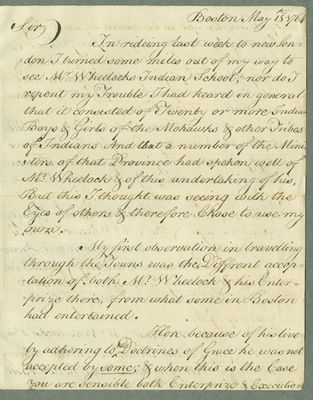 Boston May 18 1764
Sir,
In rideing last week to new lon-
don I turned some miles out of my way to
see Mr. Wheelocks Indian School; nor do I
repent my Trouble I had heard in general
that it consisted of Twenty or more Indian
Boys & Girls of the Mohawks & other Tribes
of Indians And that a number of the Mini-
sters of that Province had spoken well of
Mr. Wheelock & of this undertaking of his,
But this I thought was seeing with the
Eyes of others & therefore Chose to use my
own.
My first observation in travelling
through the Towns was the Different accep-
tation of both Mr. Wheelock & his Enter-
prize there, from what some in Boston
had entertained.
Here because of his live-
ly adhering to Doctrines of Grace he was not
accepted by some; & when this is the Case
you are sensible both Enterprize & Execution